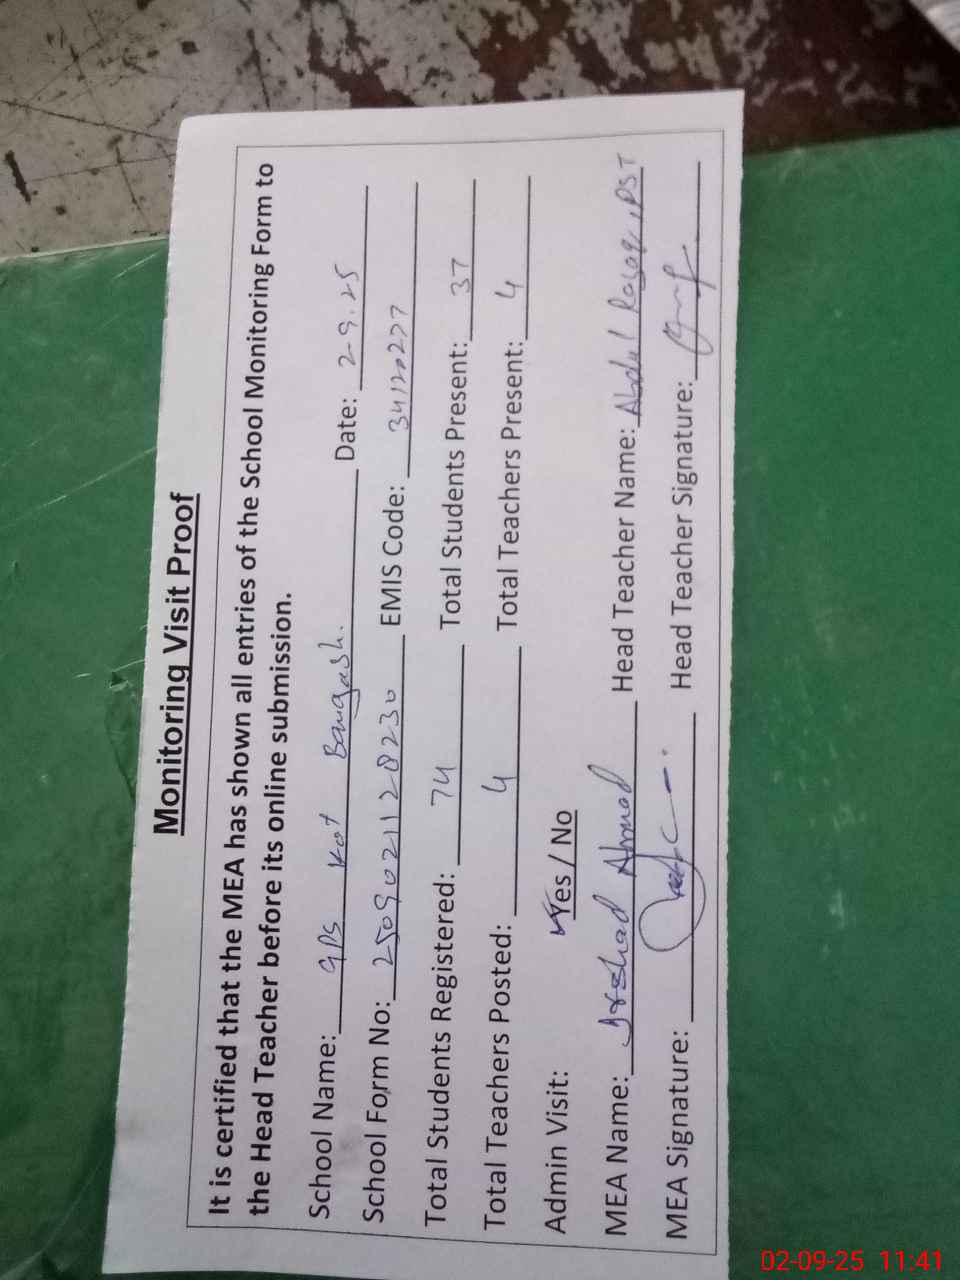 Monitoring Visit Proof
It is certified that the MEA has shown all entries of the School Monitoring Form to
the Head Teacher before its online submission.
School Name: GPS Kot Bangash. Date: 2-9.25
School Form No: 2509021128230 EMIS Code: 34120277
Total Students Registered: 74 Total Students Present: 37
Total Teachers Posted: 4 Total Teachers Present: 4
Admin Visit: Yes / No
MEA Name: Irshad Ahmad Head Teacher Name: Abdul Razaq, PST
MEA Signature: Head Teacher Signature:
02-09-25 11:41